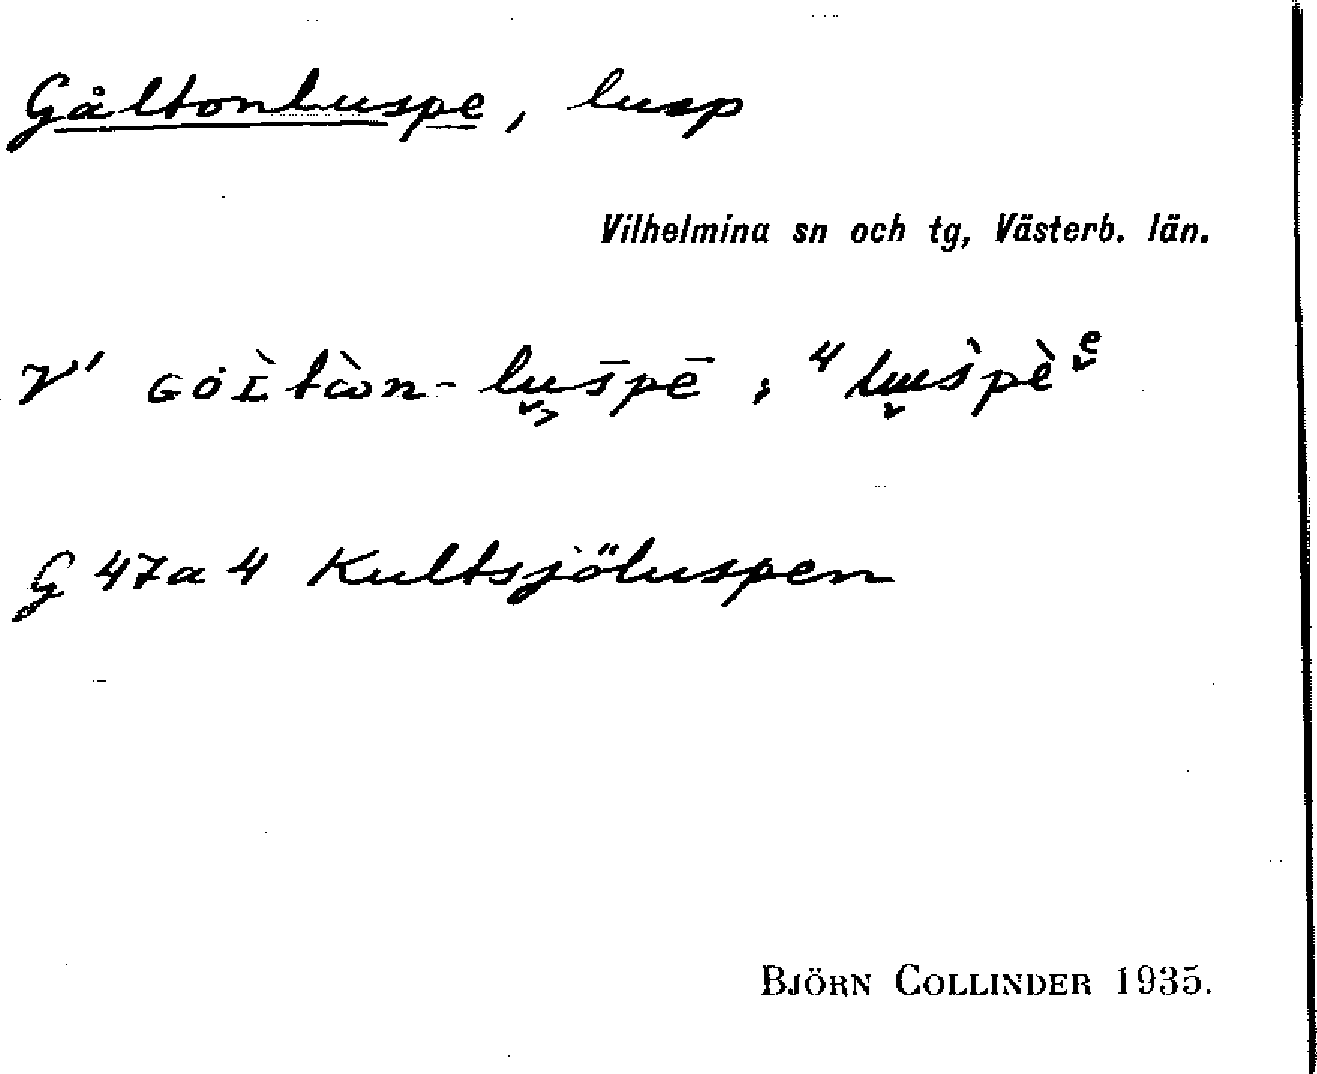 Gåltonluspe, lusp
Vilhelmina sn och tg, Västerb. län.
G 47a 4 Kultsjöluspen
BJÖRN COLLINDER 1935.